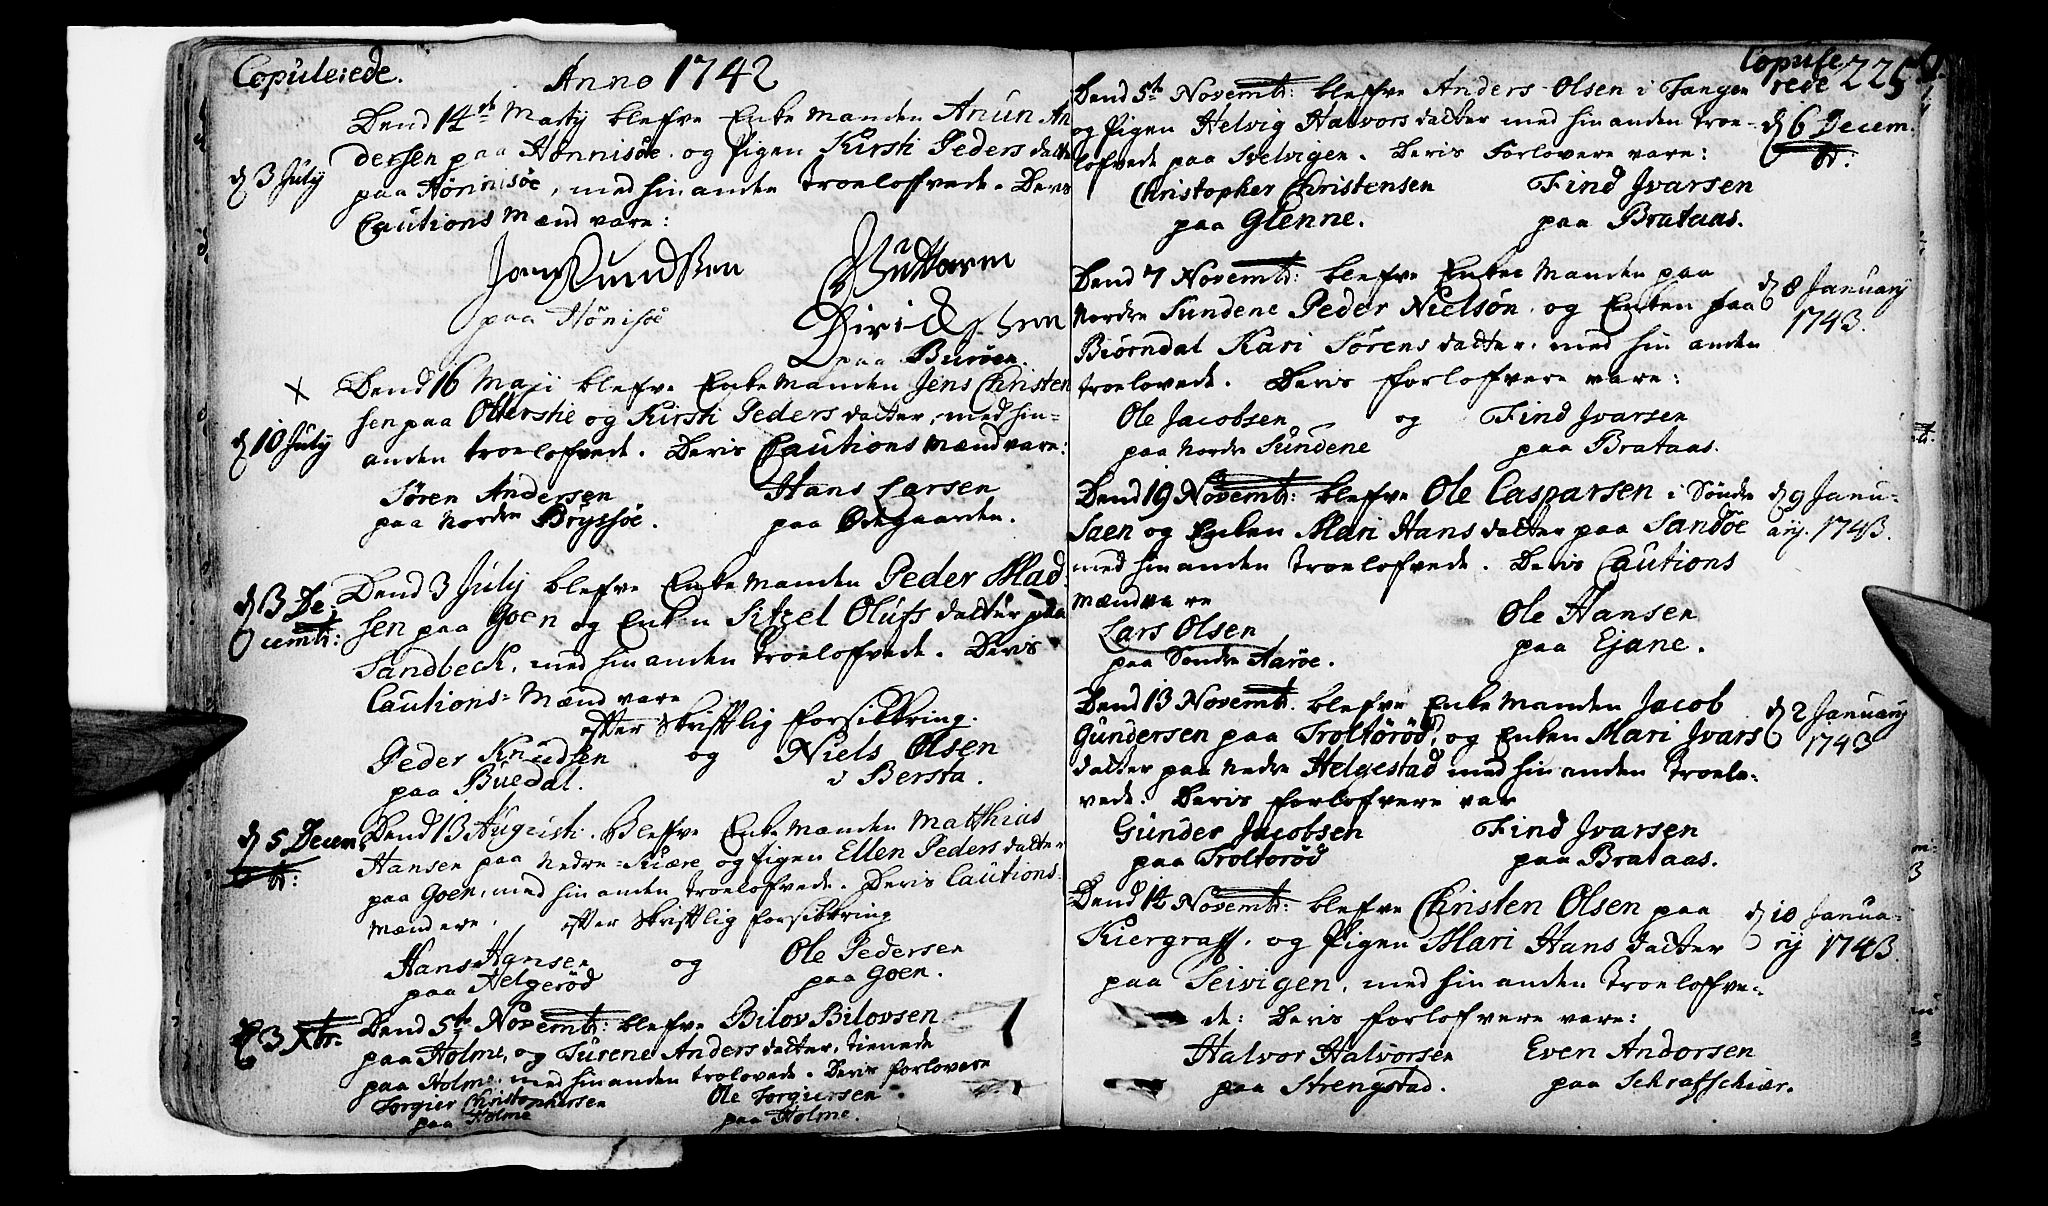 Copulerede. Anno 1742
Dend 14de Martij blefve Enke Manden Anun An
dersen paa Hönnisöe og Pigen Kirsti Peders datter
d 3 July
paa Hönnisöe, med hin anden troeloffvede. Deris
Cautions Mænd vare:
Jon Knudssen
paa Hönisöe
Diricksen
paa Buröen.
Dend 16 Maji blefve Enke Manden Jens Christen
sen paa Otterstie og Kirsti Peders datter, med hin-
d 10 July
anden troelofvede. Deris Cautions Mænd vare:
Sören Andersen Hans Larsen
paa Nordre Bryssöe. paa Ödegaarden.
Dend 3 July blefve Enke Manden Peder Mad
d 3 De
cembr:
sen paa Goen og Enken Sitzel Olufs datter paa
Sandbeck, med hin anden troelofvede. Deris
Cautions-Mænd vare
efter Skrifftlig forsikkring.
Peder Knudsen og Niels Olsen
paa Buedal. i Bersta.
d 5 Decem
br:
Dend 13 Augusti. Bleffve Enke Manden Matthias
Hansen paa Nedre-Kiære og Pigen Ellen Peders datter
paa Goen, med hin anden troelofvede. Deris Cautions
Mænd ere, efter Skrifftlig forsikkring
Hans Hansen og Ole Pedersen
paa Helgeröd paa Goen.
d 3 Xbr.
Dend 5te Novembr: blefve Bilov Bilovsen
paa Holme, og Surene Anders datter, tienede
paa Holme, med hin anden trolovede. Deris forlovere
Torgier Christophersen Ole Torgiersen
paa Holme paa Holme.
Copule
rede 225
Dend 5te Novembr: blefve Anders Olsen i Tangen
og Pigen Helvig Halvors datter med hin anden troe-
lofvede paa Svelvigen. Deris Forlovere vare:
d 6 Decem
br:
Christopher Christensen Find Jvarsen
paa Glenne. paa Brataas.
Dend 7 Novembr: blefve Enke Manden paa
Nordre Sundene Peder Nielsön, og Enken paa
Biörndal Kari Sörens datter, med hin anden
troelovede. Deris forloffvere vare:
d 8 January
1743.
Ole Jacobsen og Find Jvarsen
paa Nordre Sundene paa Brataas.
Dend 19 Novembr: blefve Ole Casparsen i Söndre
Saen og Enken Mari Hans datter paa Sandöe
med hin anden troelofvede. Deris Cautions
Mænd vare
d 9 Janu-
ary. 1743.
Lars Olsen Ole Hansen
paa Söndre Aaröe. paa Ejane.
Dend 13 Novembr. blefve Enke Manden Jacob
Gundersen paa Troltöröd, og Enken Mari Jvars
datter paa Nedre Helgestad med hin anden troelo-
vede. Deris forlofvere var
d 2 January
1743
Gunder Jacobsen Find Jvarsen
paa Troltoröd paa Brataas.
Dend 14 Novembr: blefve Christen Olsen paa
Kiergraff, og Pigen Mari Hans datter
paa Seivigen, med hin anden troeloffve-
de: Deris forloffvere vare:
d 10 Janua-
ry 1743.
Halvor Halvorsen Even Andorsen
paa Strengstad. paa Schraffschiær.